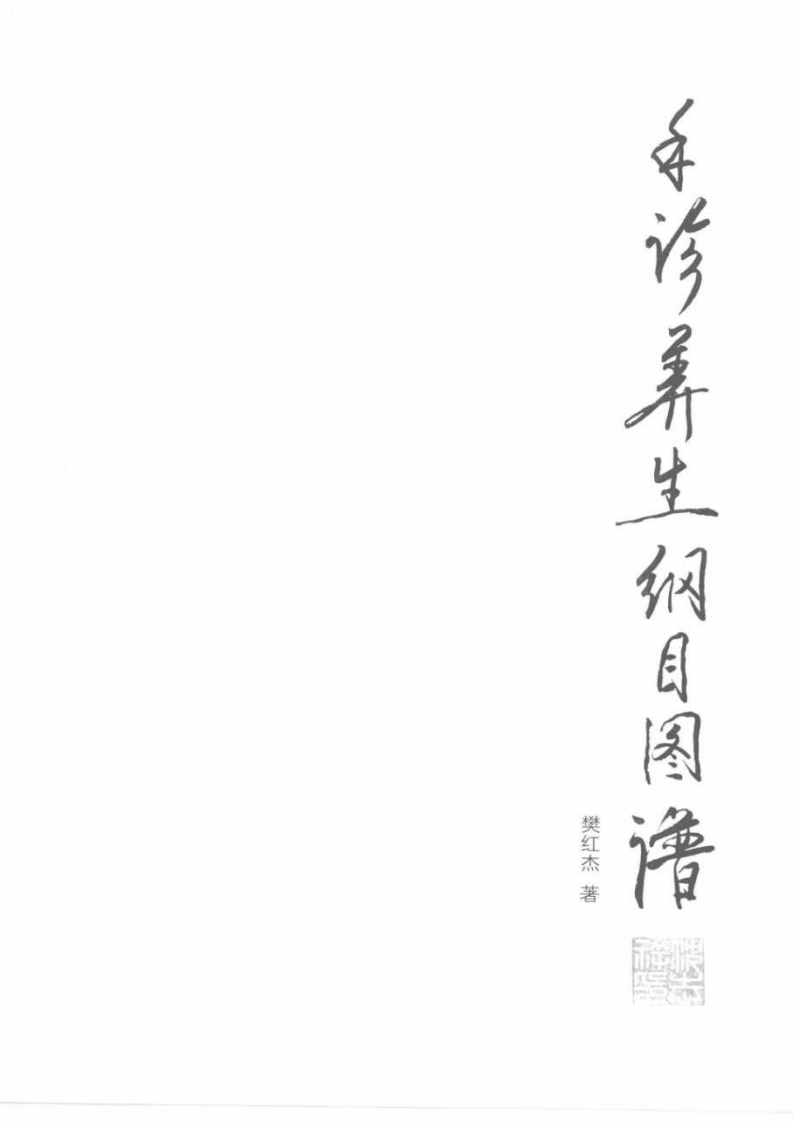 手诊养生纲目图谱
樊红杰 著